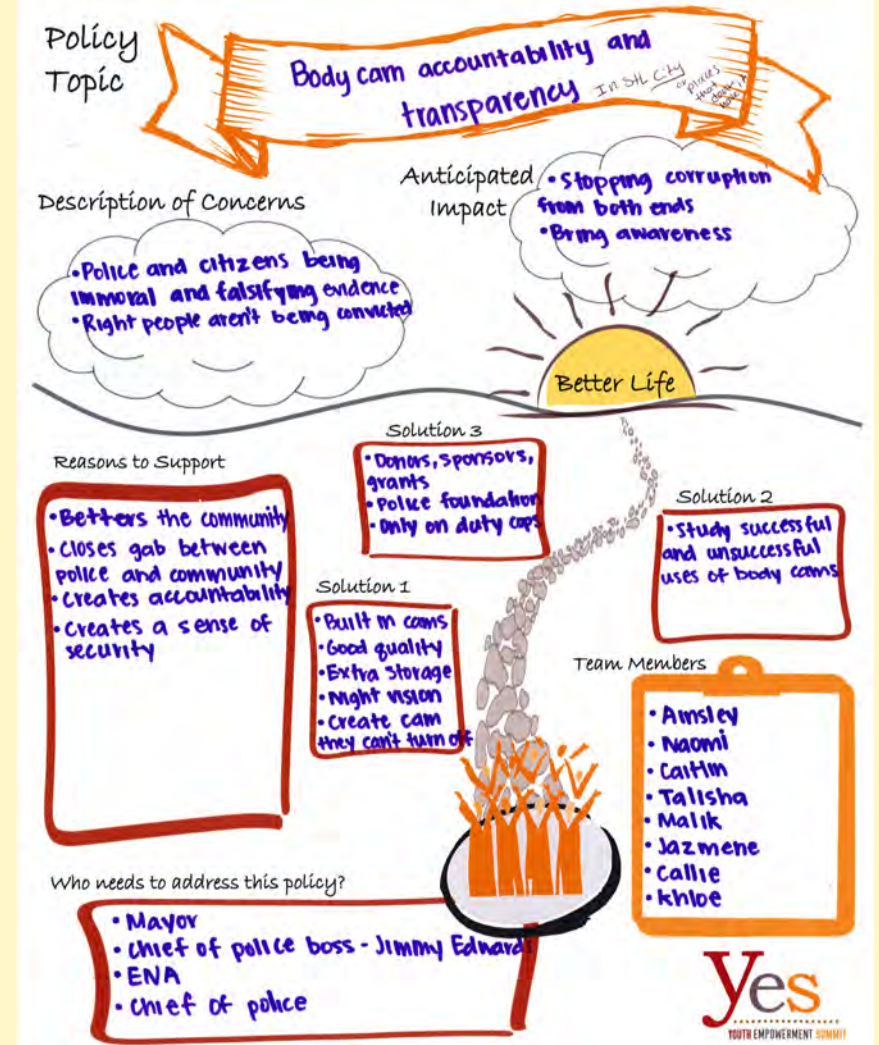 Policy
Topic
Body cam accountability and
transparency In STL City
or places
that don't
have it
Description of Concerns
•Police and citizens being
immoral and falsifying evidence
•Right people aren't being convicted
Anticipated
Impact
•Stopping corruption
from both ends
•Bring awareness
Better Life
Reasons to Support
•Betters the community
•Closes gab between
police and community
•Creates accountability
•Creates a sense of
security
Solution 3
•Donors, sponsors,
grants
•Police foundation
•Only on duty cops
Solution 1
•Built in cams
•Good quality
•Extra storage
•Night vision
•Create cam
they can't turn off
Solution 2
•Study successful
and unsuccessful
uses of body cams
Team Members
•Ainsley
•Naomi
•Caitlin
•Talisha
•Malik
•Jazmene
•Callie
•Khloe
Who needs to address this policy?
•Mayor
•Chief of police boss - Jimmy Edwards
•ENA
•Chief of police
yes
YOUTH EMPOWERMENT SUMMIT